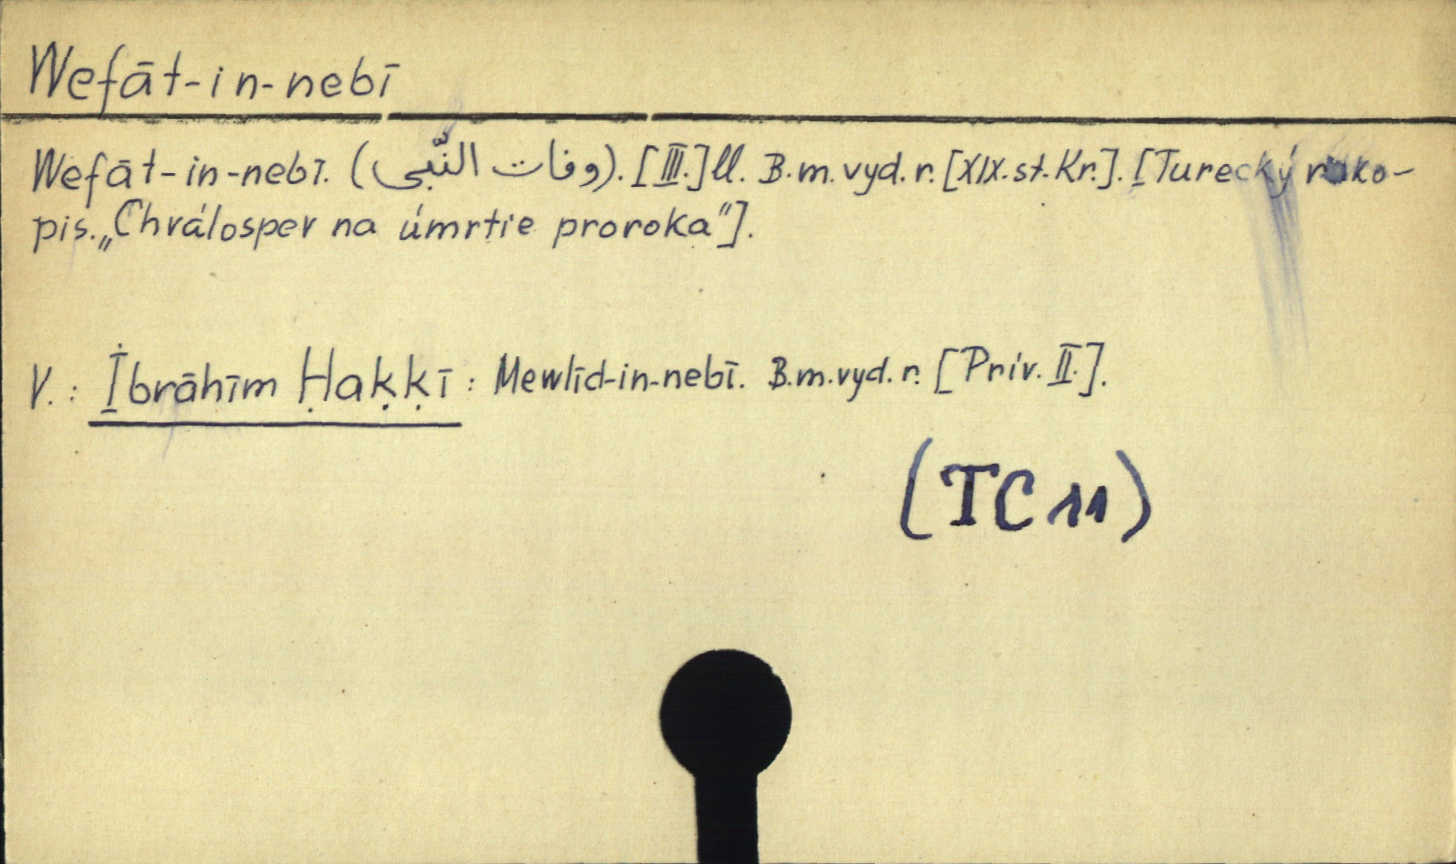 Wefāt-in-nebī
Wefāt-in-nebī. (وفات النّبى). [III.] ll. B.m.vyd.r. [XIX.st.Kr.]. [Turecký ruko-
pis. „Chválospev na úmrtie proroka"].
V.: İbrāhīm Ḥaḳḳī: Mewlīd-in-nebī. B.m.vyd.r. [Prív. II.].
(TC 11)